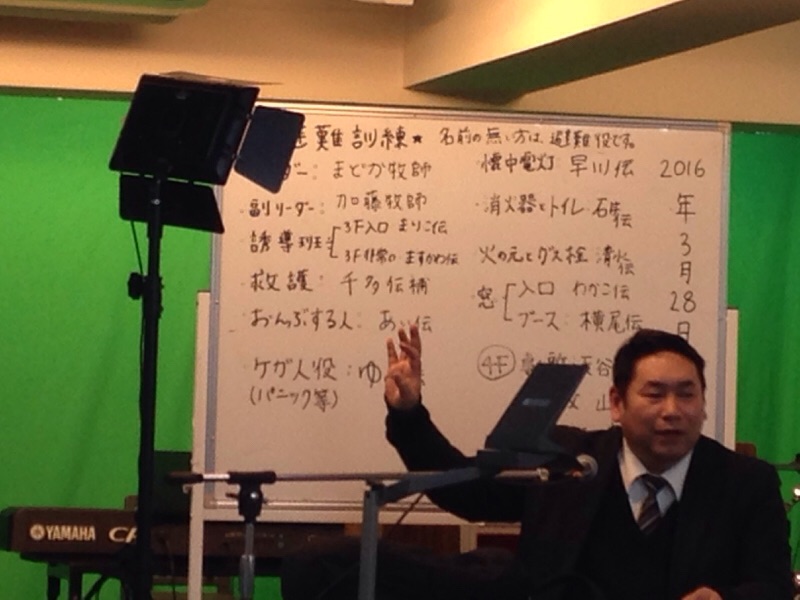 難訓練★ 名前の無い方は、避難役です。
ダー: まどか牧師
副リーダー: 加藤牧師
誘導班 3F入口 まりこ伝
3F非常口 ますかわ伝
救護: 千多伝補
おんぶする人: あい伝
ケガ人役: ゆ
(パニック等)
懐中電灯 早川伝
消火器とトイレ 石 伝
火の元とガス栓 清水伝
窓 入口 わかこ伝
ブース 横尾伝
4F
山
2016
年
3
月
28
日
YAMAHA CP